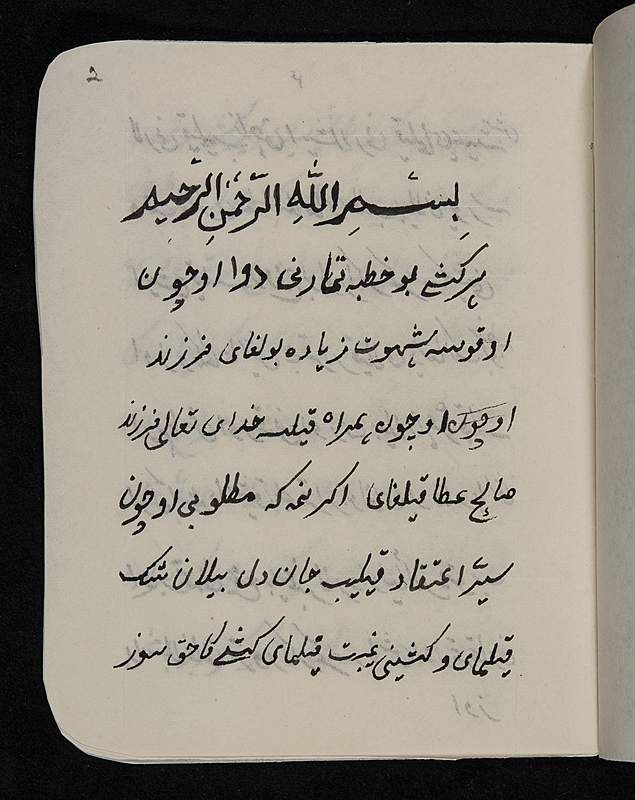 2
بِسْمِ اللّٰهِ الرَّحْمٰنِ الرَّحِیم
هر کشی بو خطبه نی دوا اوچون
اوقوسه شهوت زیاده بولغای فرزند
اوچون همراه قیلسه خدای تعالی فرزند
صالح عطا قیلغای اکر نمه که مطلوبی اوچون
اعتقاد قیلیب جان دل بیلان شک
قیلمای و کشینی غیبت قیلمای کشی کا حق سوز